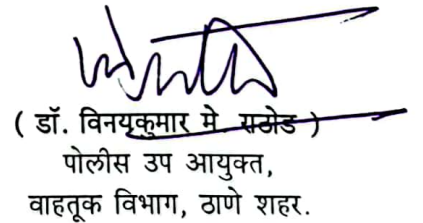 ( डॉ. विनयकुमार मे. राठोड )
पोलीस उप आयुक्त,
वाहतूक विभाग, ठाणे शहर.